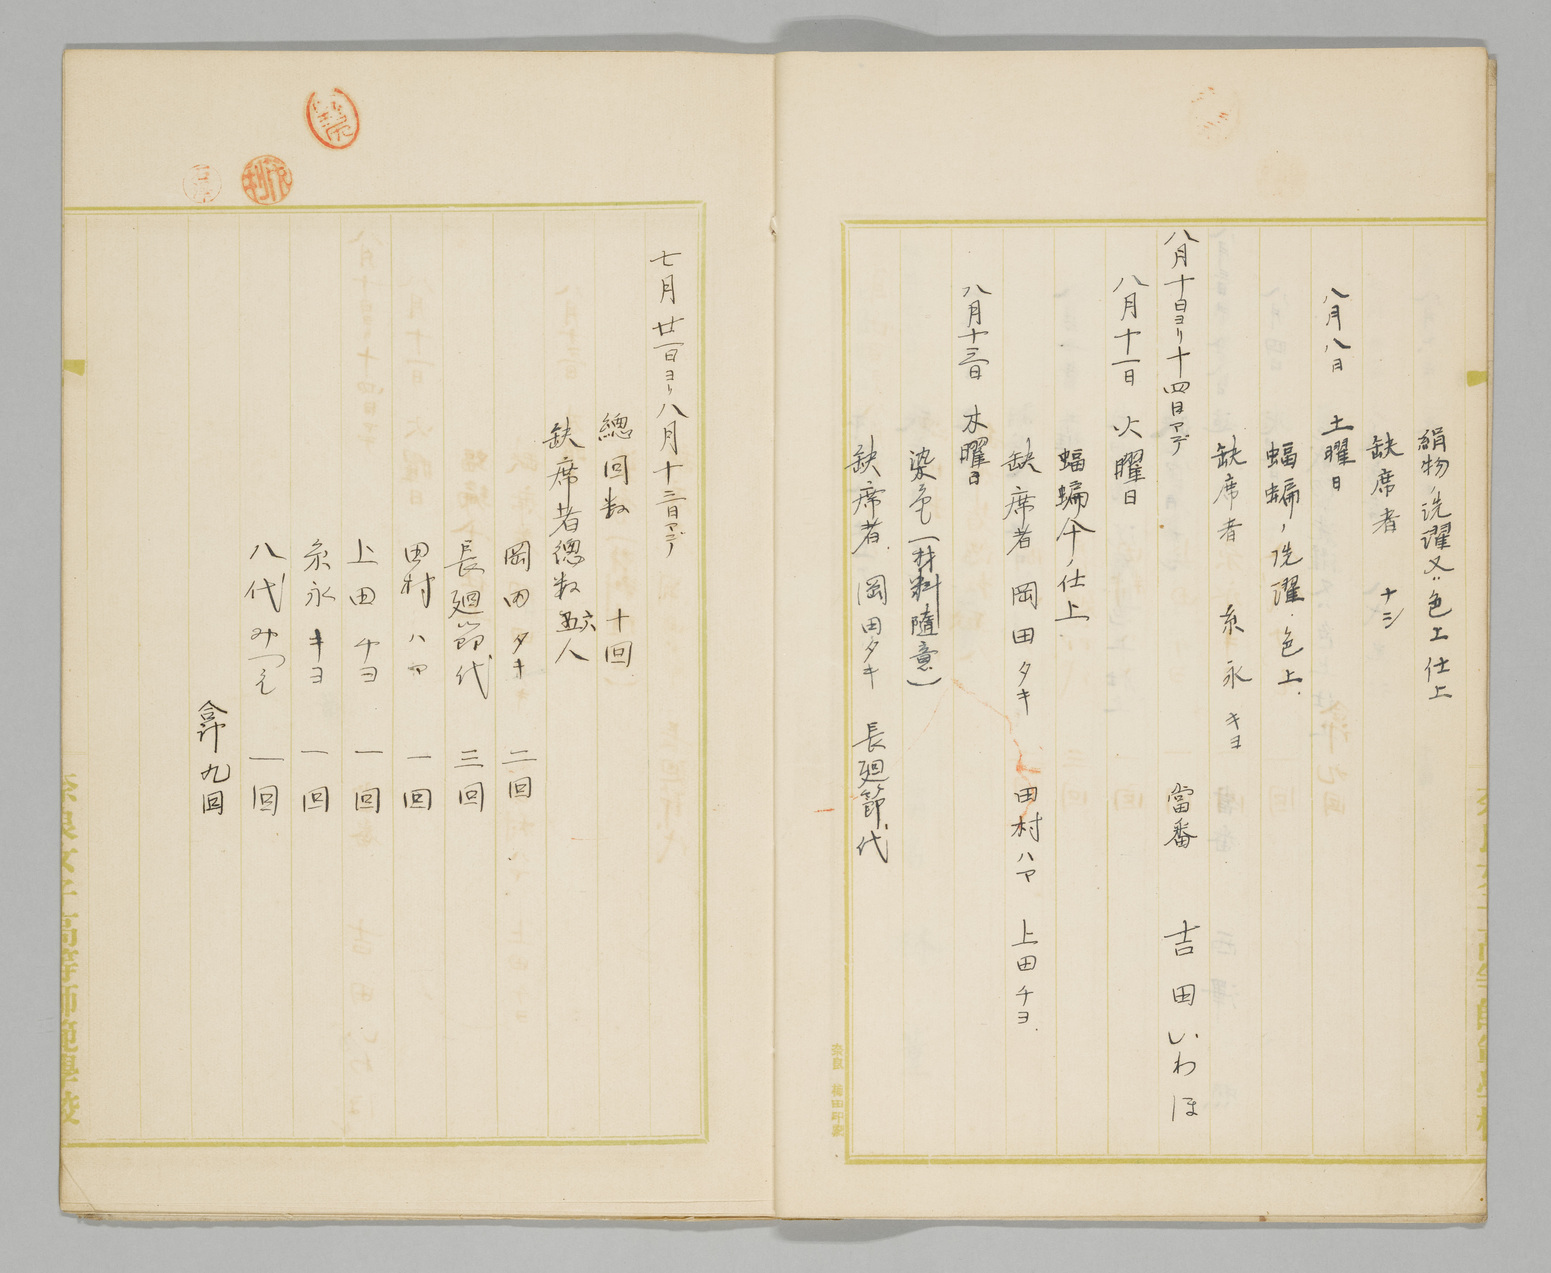 絹物ノ洗濯又ハ色上仕上
缺席者 ナシ
八月八日 土曜日
蝙蝠ノ洗濯.色上.
缺席者 糸永キヨ
八月十日ヨリ十四日マデ 當番 吉田いわほ
八月十一日 火曜日
蝙蝠傘ノ仕上
缺席者 岡田タキ 田村ハマ 上田チヨ.
八月十三日 木曜日
染色(材料隨意)
缺席者.岡田タキ 長廻節代
奈良
七月廿一日ヨリ八月十三日マデ
總回数 十回
缺席者總数六人
岡田タキ 二回
長廻節代 三回
田村ハマ 一回
上田チヨ 一回
糸永キヨ 一回
八代みつえ 一回
合計九回
奈良女子高等師範學校